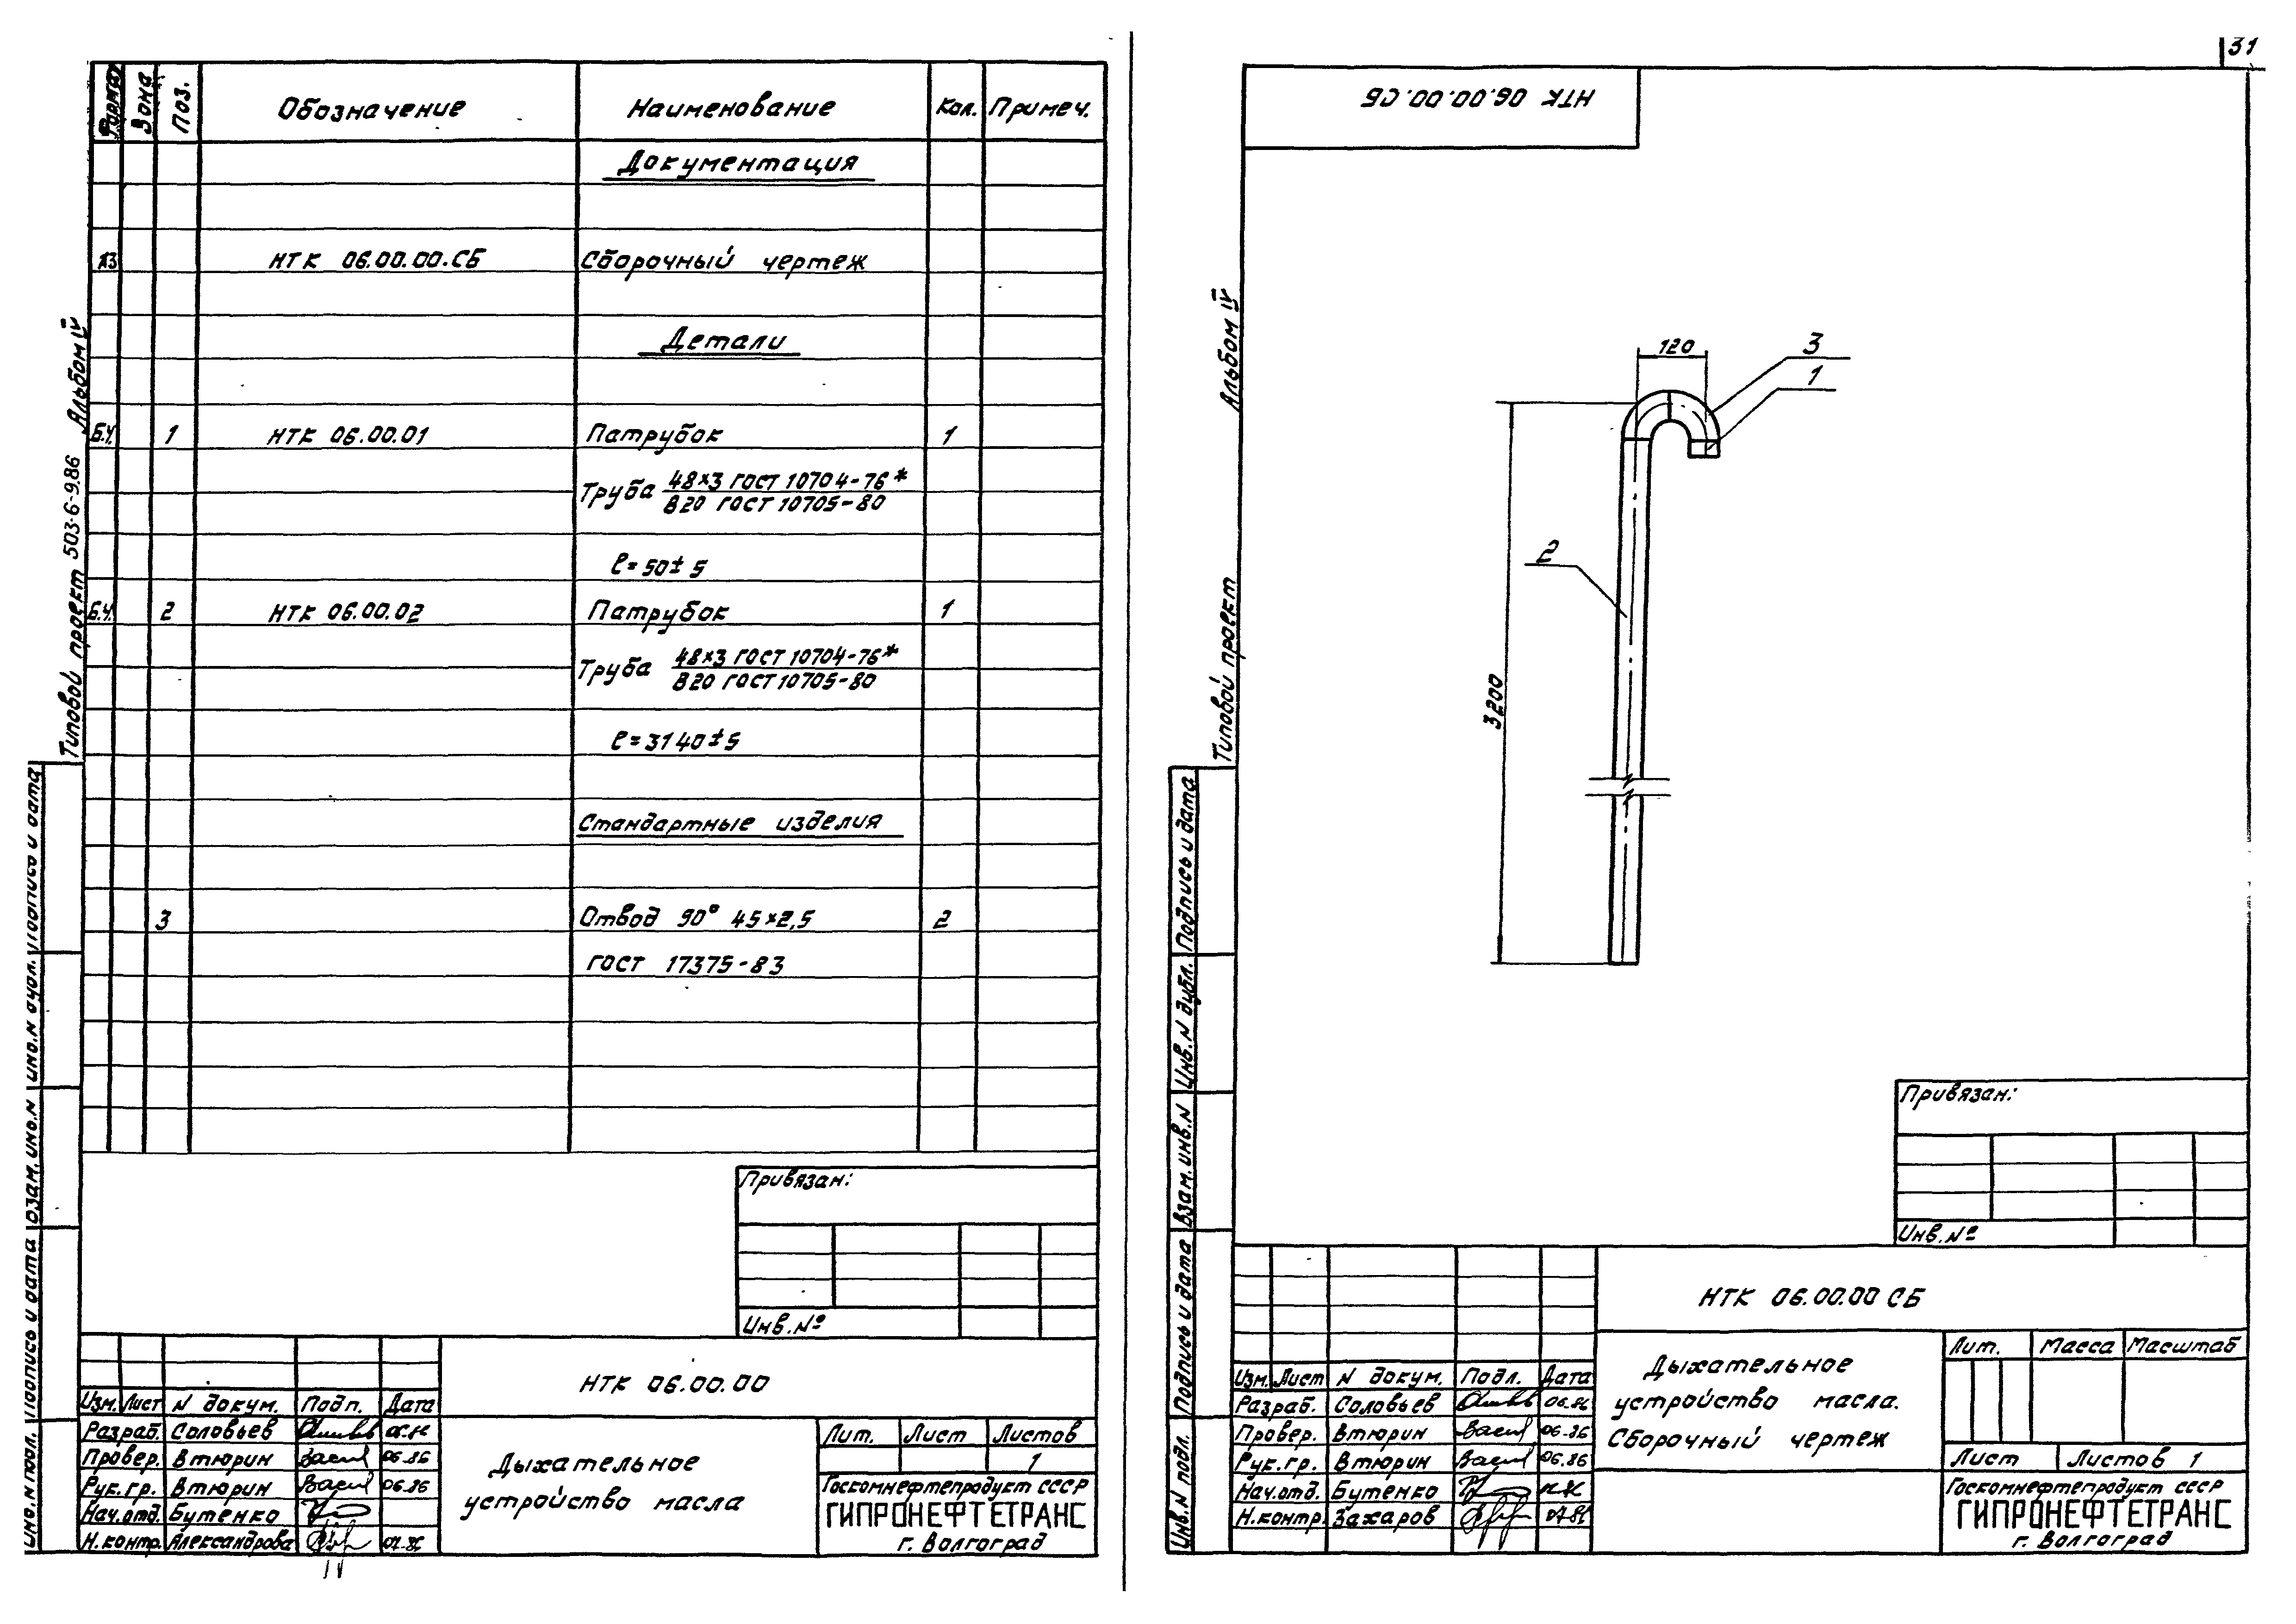 Формат Зона Поз. Обозначение Наименование Кол. Примеч.
Документация
А3 НТК 06.00.00.СБ Сборочный чертеж
Детали
Б.Ч. 1 НТК 06.00.01 Патрубок 1
Труба 48×3 ГОСТ 10704-76*
В20 ГОСТ 10705-80
ℓ=50±5
Б.Ч. 2 НТК 06.00.02 Патрубок 1
Труба 48×3 ГОСТ 10704-76*
В20 ГОСТ 10705-80
ℓ=3140±5
Стандартные изделия
3 Отвод 90° 45×2,5 2
ГОСТ 17375-83
Типовой проект 503-6-9.86 Альбом IV
Инв.N подл. Подпись и дата Взам.инв.N Инв.N дубл. Подпись и дата
Привязан:
Инв.№
НТК 06.00.00
Изм. Лист N докум. Подп. Дата
Разраб. Соловьев 06.86
Провер. Втюрин 06.86
Рук.гр. Втюрин 06.86
Нач.отд. Бутенко
Н.контр. Александрова 07.86
Дыхательное
устройство масла
Лит. Лист Листов
1
Госкомнефтепродукт СССР
ГИПРОНЕФТЕТРАНС
г. Волгоград
31
НТК 06.00.00.СБ
Альбом IV
Типовой проект
120
3
1
2
3200
Инв.N подл. Подпись и дата Взам.инв.N Инв.N дубл. Подпись и дата
Привязан:
Инв.№
НТК 06.00.00 СБ
Изм. Лист N докум. Подп. Дата
Разраб. Соловьев 06.86
Провер. Втюрин 06.86
Рук.гр. Втюрин 06.86
Нач.отд. Бутенко
Н.контр. Захаров 07.86
Дыхательное
устройство масла.
Сборочный чертеж
Лит. Масса Масштаб
Лист Листов 1
Госкомнефтепродукт СССР
ГИПРОНЕФТЕТРАНС
г. Волгоград